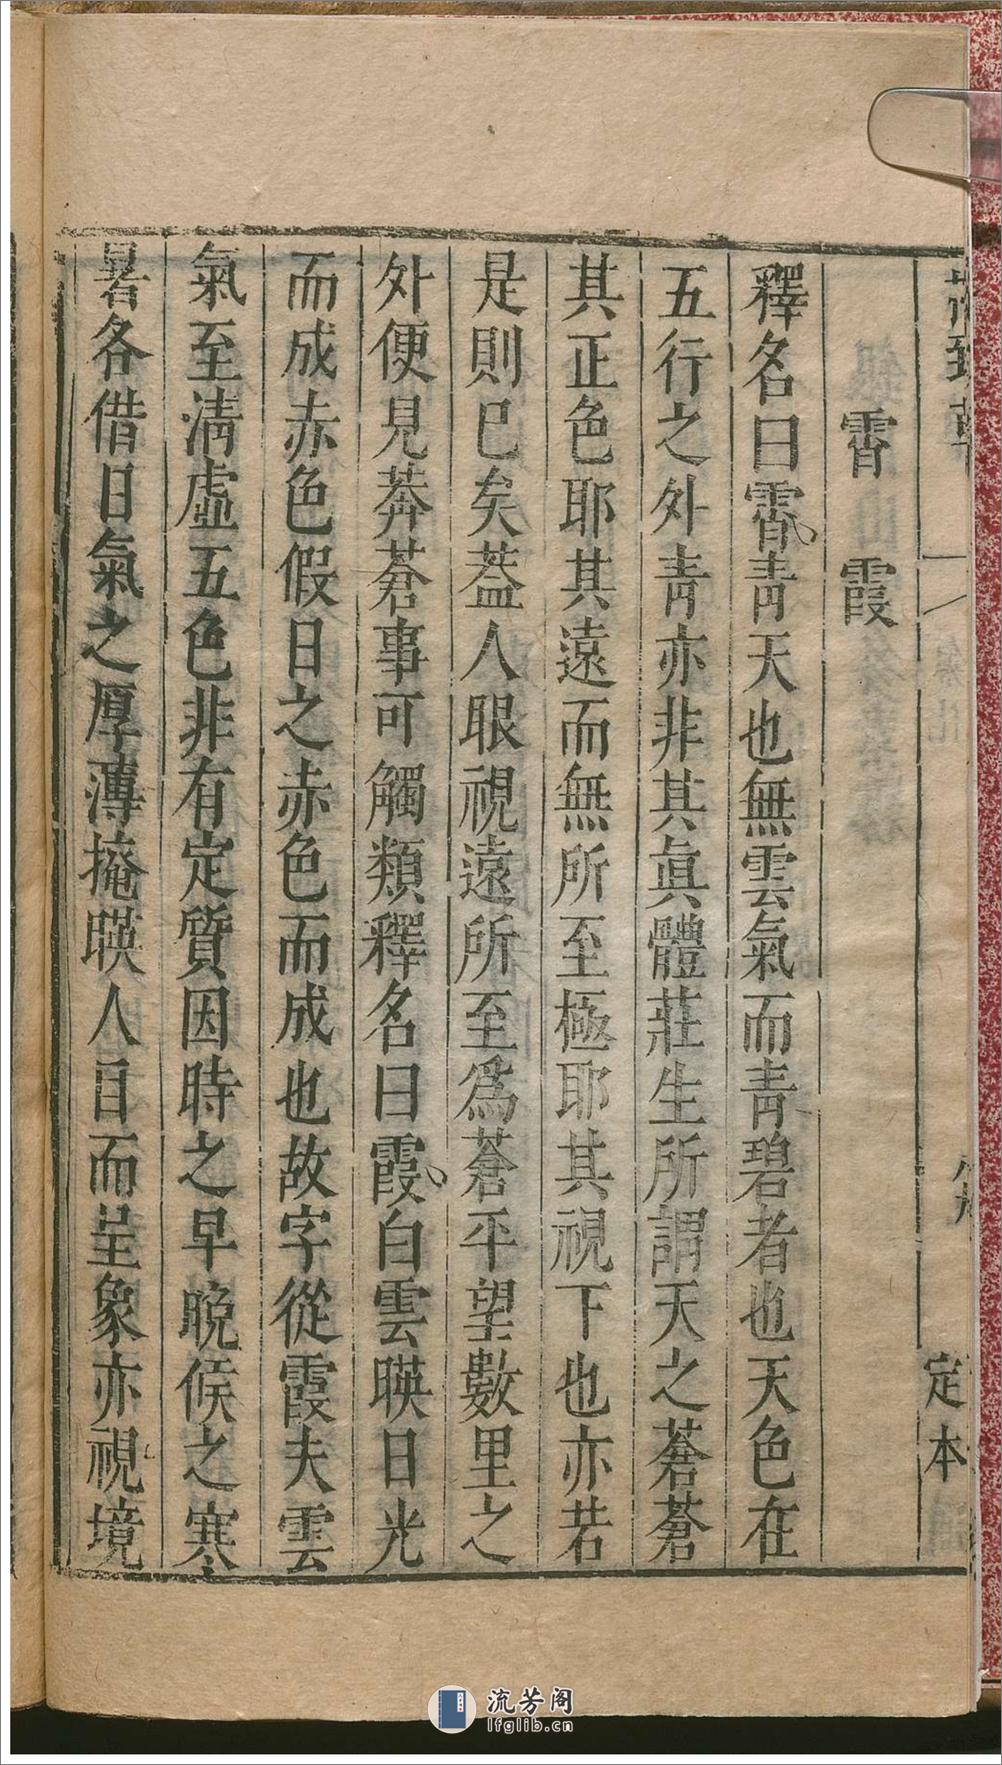 定本
霄霞
釋名曰霄靑天也無雲氣而靑碧者也天色在
五行之外靑亦非其眞體莊生所謂天之蒼蒼
其正色耶其遠而無所至極耶其視下也亦若
是則已矣葢人眼視遠所至爲蒼平望數里之
外便見莽蒼事可觸類釋名曰霞白雲暎日光
而成赤色假日之赤色而成也故字從霞夫雲
氣至淸虛五色非有定質因時之早晚候之寒
暑各借日氣之厚薄掩暎人目而呈象亦視境
流芳阁
lfglib.cn